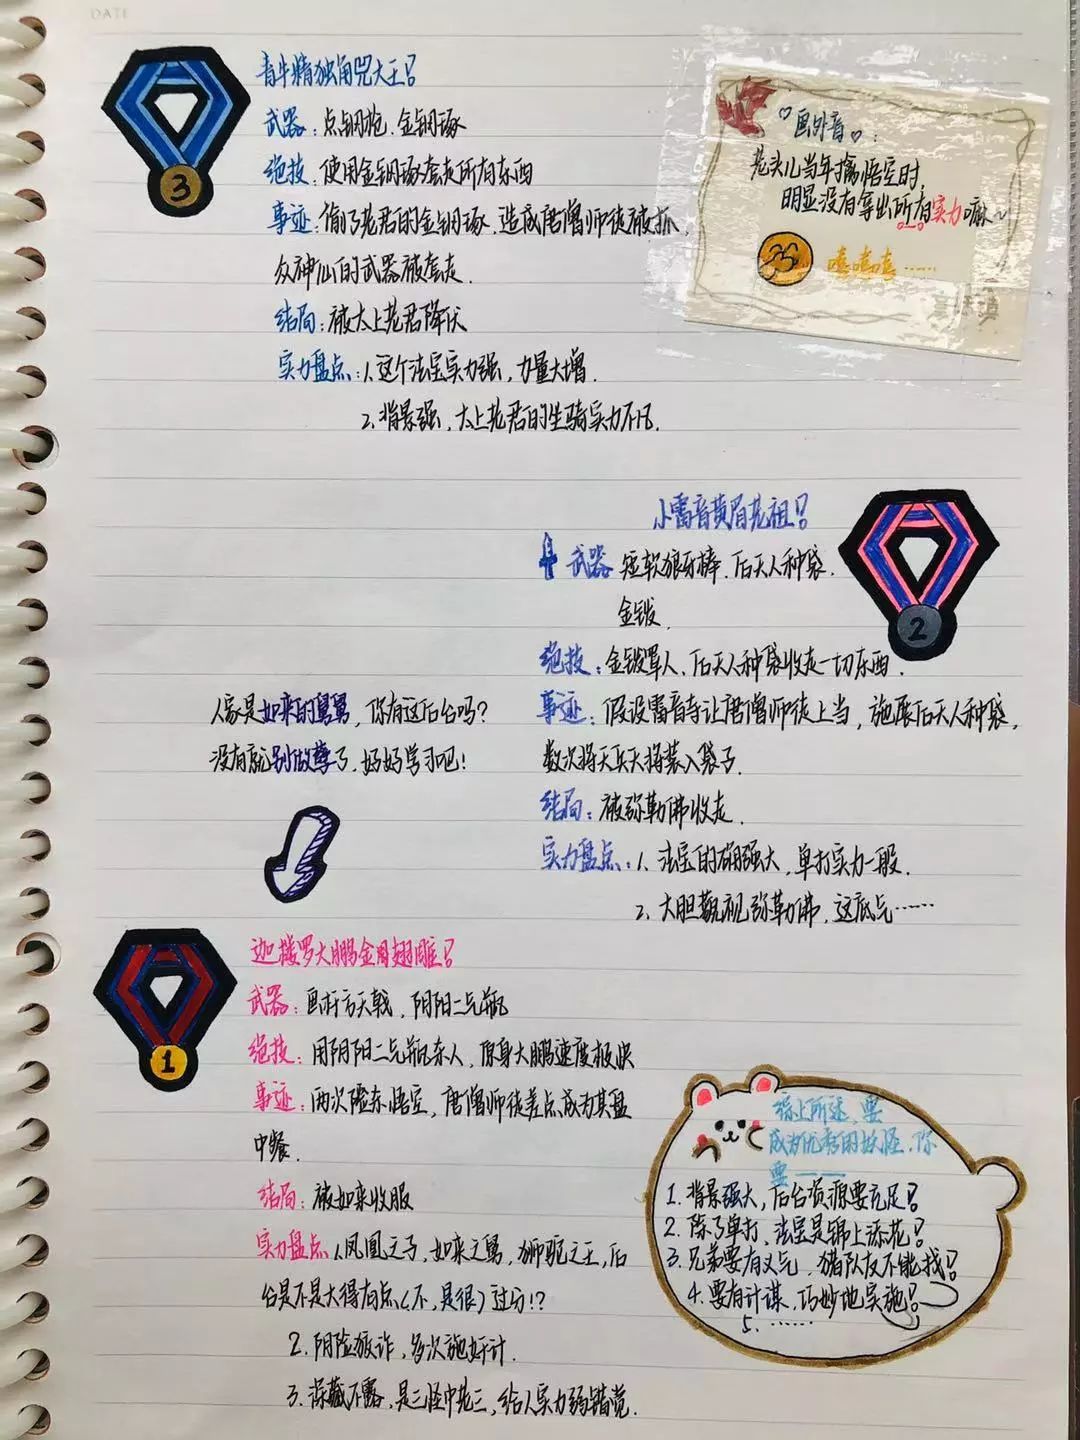 DATE
青牛精独角兕大王!
武器:点钢枪、金钢琢
绝技:使用金钢琢套走所有东西
事迹:偷了老君的金钢琢,造成唐僧师徒被抓,
众神仙的武器被套走.
结局:被太上老君降伏
实力盘点:1.这个法宝实力强,力量大增.
2.背景强,太上老君的坐骑实力不凡.
3
♡画外音♡:
老头儿当年擒悟空时,
明显没有拿出所有实力嘛~
嘻嘻嘻……
小雷音黄眉老祖!
武器 短软狼牙棒、后天人种袋.
金铍
绝技:金铍罩人、后天人种袋收走一切东西.
事迹:假设雷音寺让唐僧师徒上当,施展后天人种袋,
数次将天兵天将装入袋子.
结局:被弥勒佛收走.
实力盘点:1.法宝的确强大,单打实力一般.
2.大胆藐视弥勒佛,这底气……
2
人家是如来的舅舅,你有这后台吗?
没有就别做孽了,好好学习吧!
迦楼罗大鹏金翅雕!
武器:画杆方天戟,阴阳二气瓶
绝技:用阴阳二气瓶杀人,原身大鹏速度极快
事迹:两次险杀悟空,唐僧师徒差点成为其盘
中餐.
结局:被如来收服
实力盘点 1.凤凰之子,如来之舅,狮驼之王,后
台是不是大得有点(不,是很)过分!?
2.阴险狡诈,多次施奸计.
3.深藏不露,是三怪中老三,给人实力弱错觉.
1
综上所述,要
成为优秀的妖怪,你
要——
1.背景强大,后台资源要充足!
2.除了单打,法宝是锦上添花!
3.兄弟要有义气,猪队友不能找!
4.要有计谋,巧妙地实施!
5.……